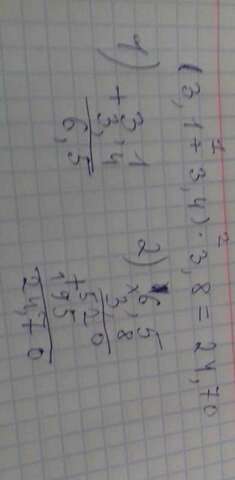 1 2
(3,1+3,4)·3,8=24,70
1) 3,1
+ 3,4
6,5
2) 6,5
× 3,8
520
+ 195
24,70